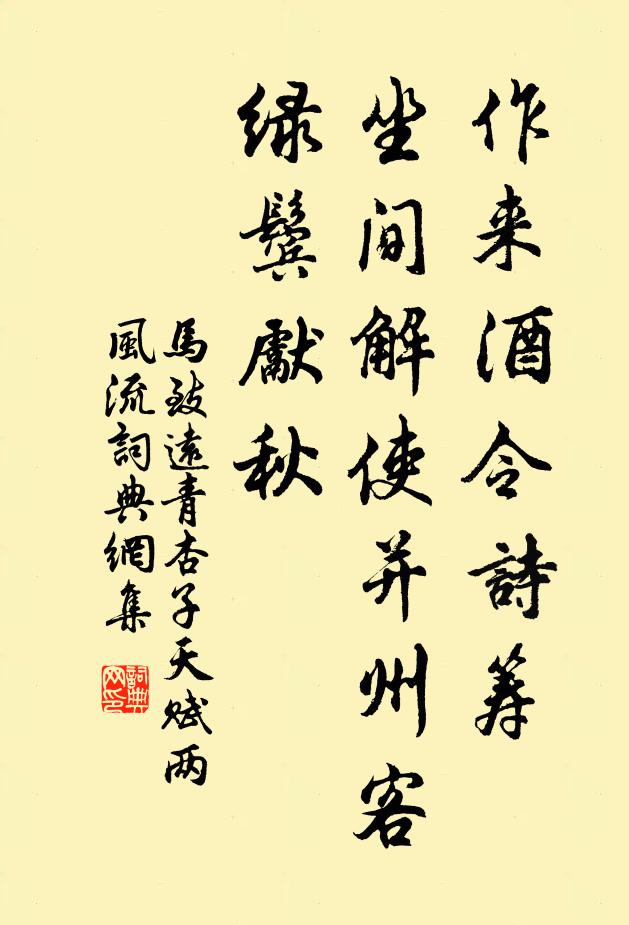 作来酒令詩筹
坐间解使并州客
绿鬓獻秋
馬致遠青杏子天赋两
風流詞典網集
詞典网印